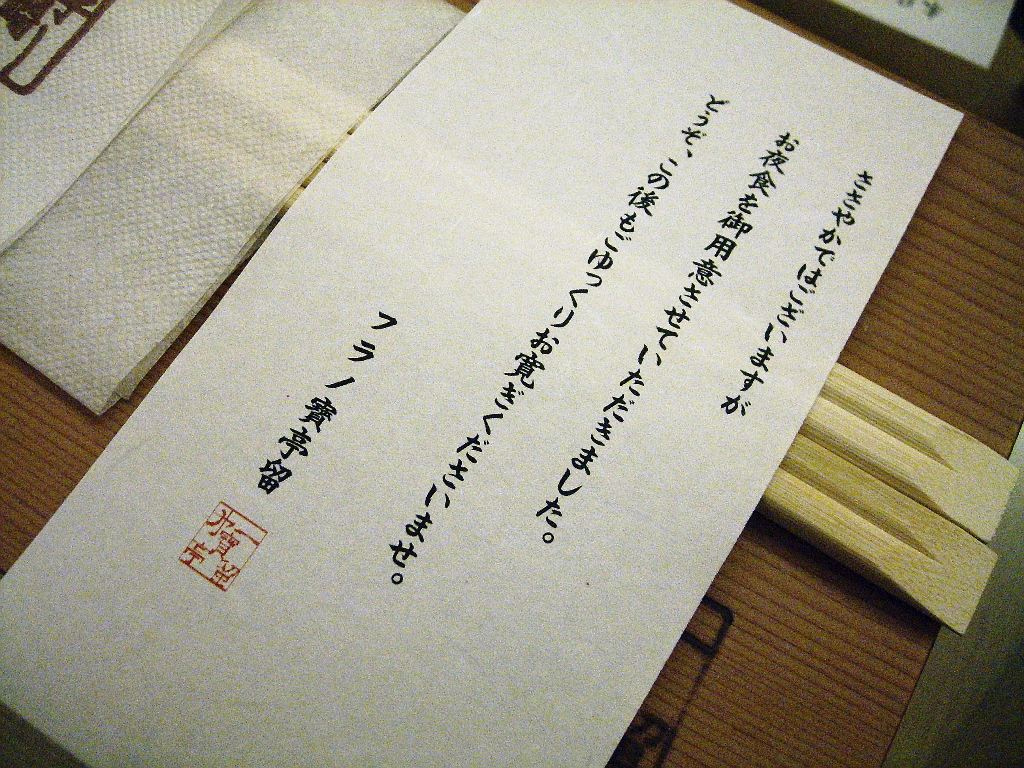 ささやかではございますが
お夜食を御用意させていただきました。
どうぞ、この後もごゆっくりお寛ぎくださいませ。
フラノ寳亭留